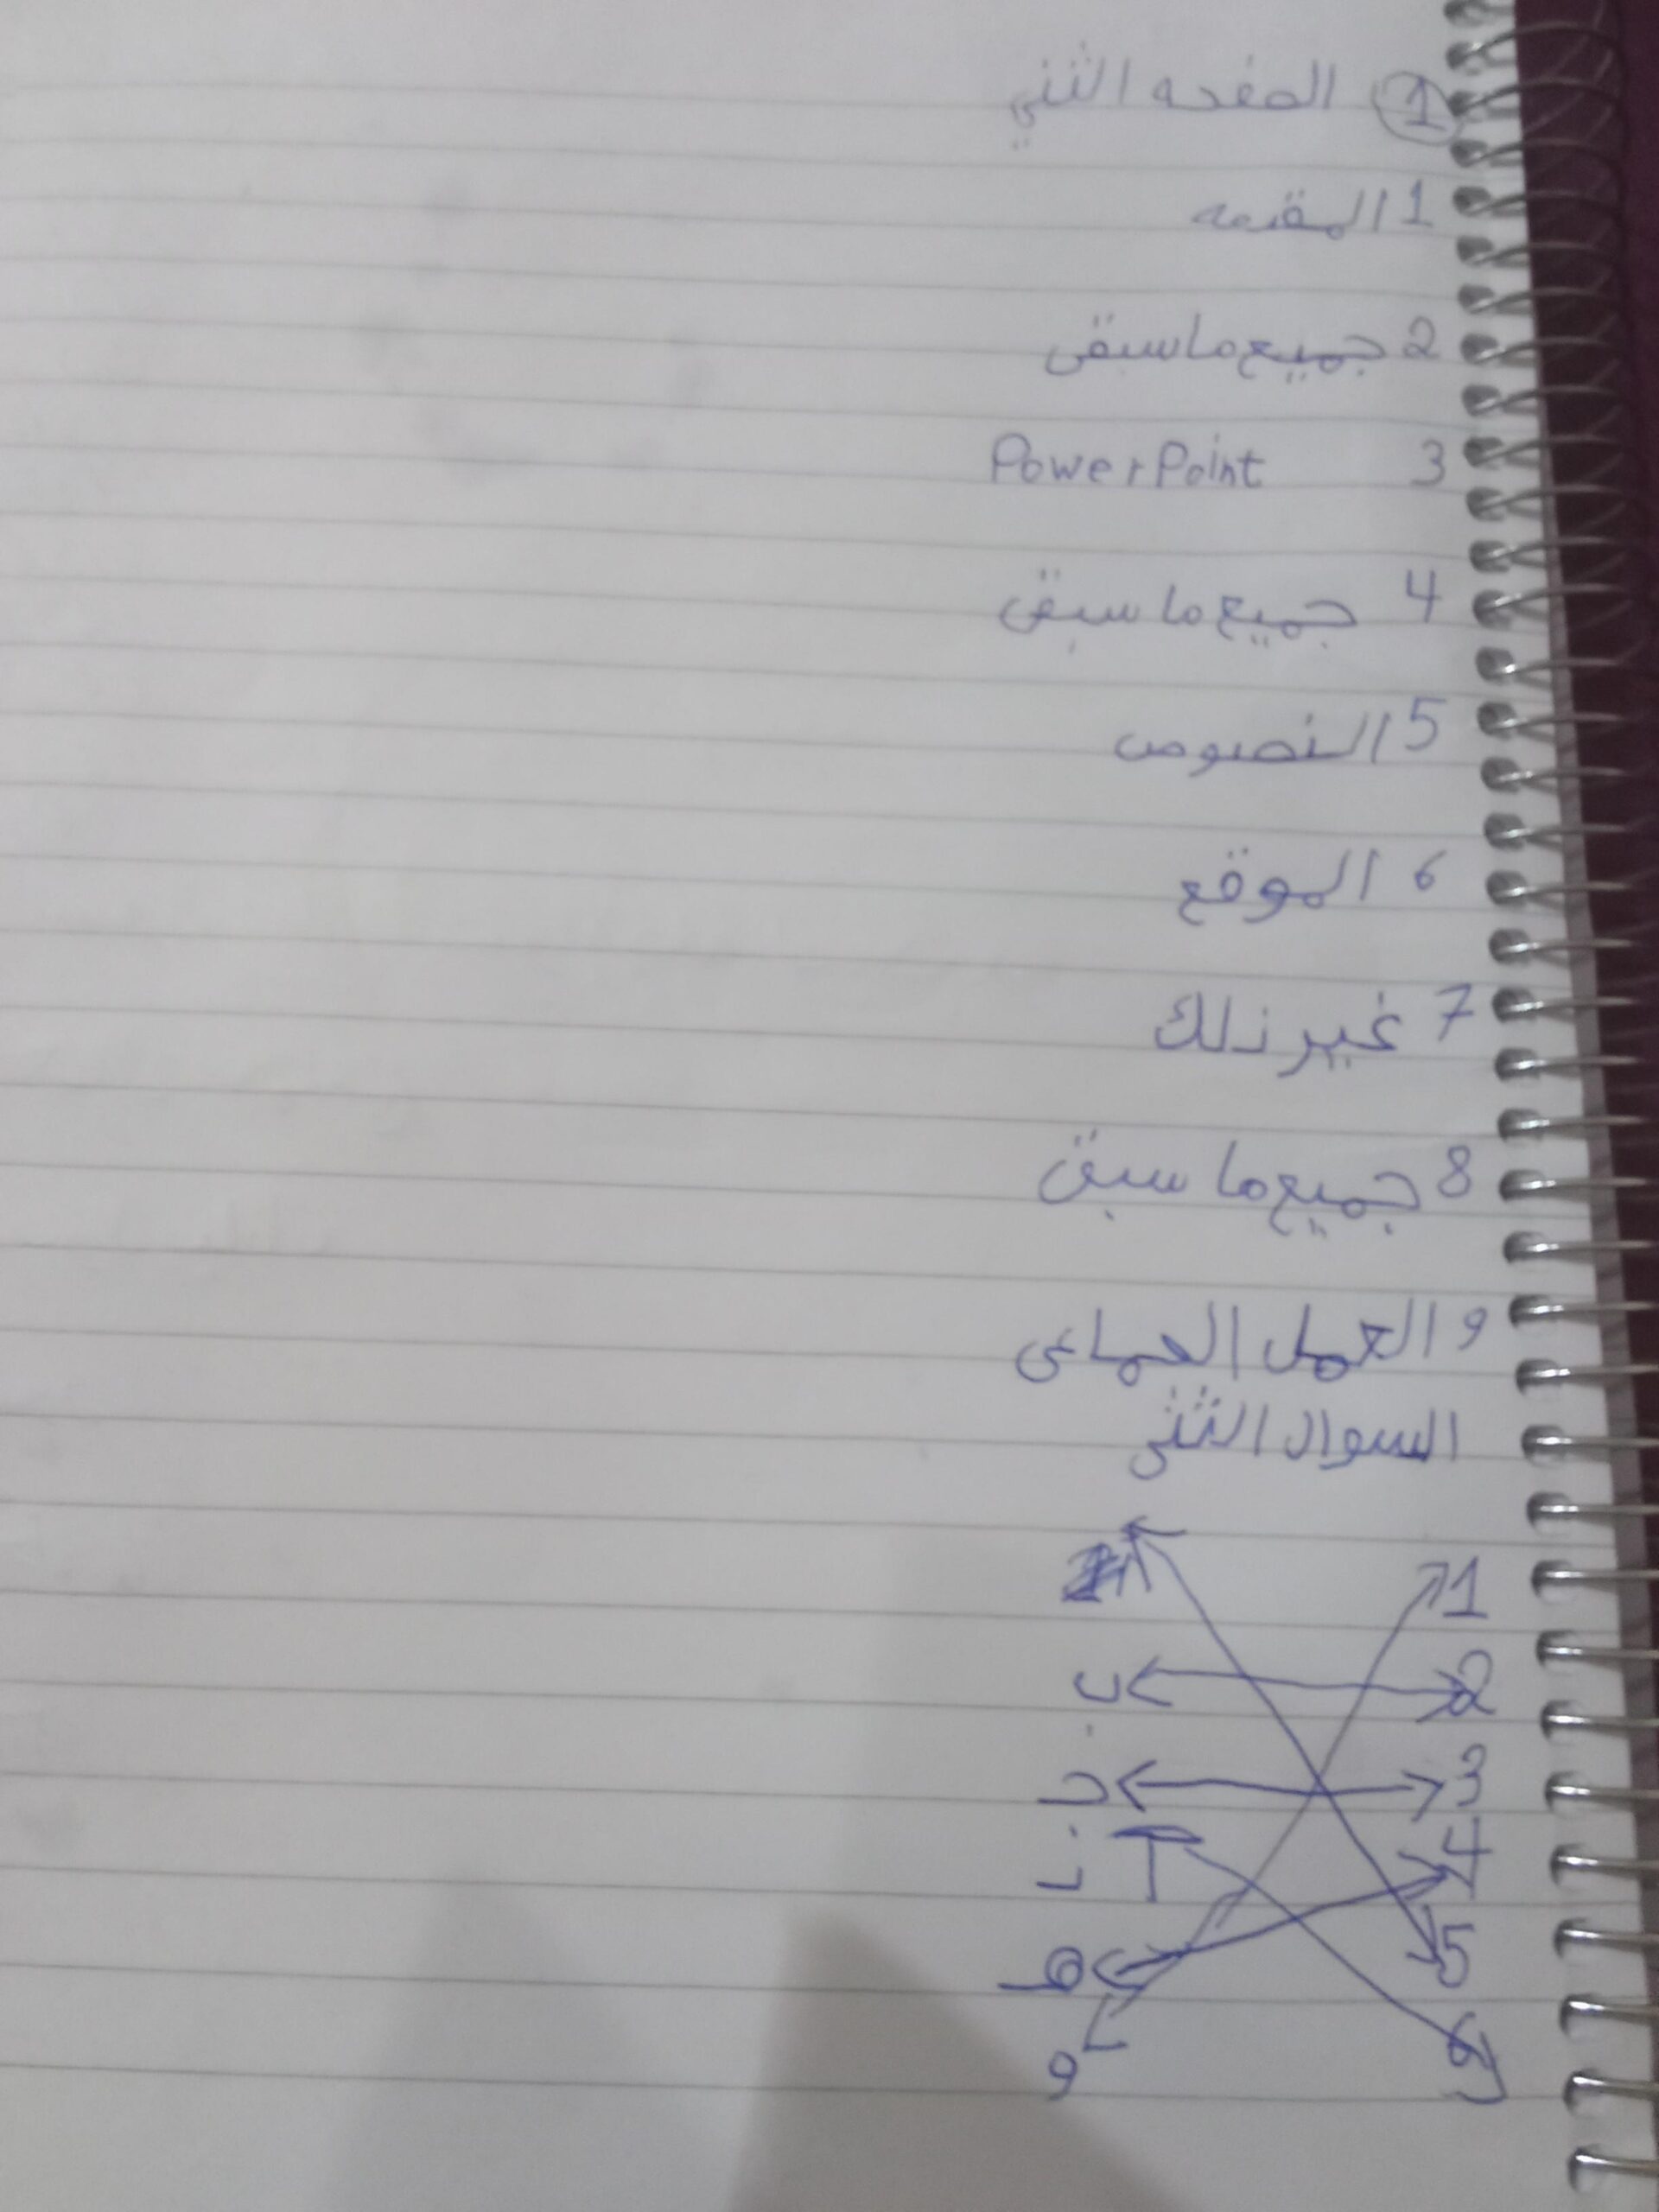 1 الصفحه الثني
1 المقدمه
2 جميع ما سبق
3 PowerPoint
4 جميع ما سبق
5 النصوص
6 الموقع
7 غير ذلك
8 جميع ما سبق
9 العمل الجماعي
السوال الثني
1 أ
2 ب
3 ج
4 د
5 هـ
6 و